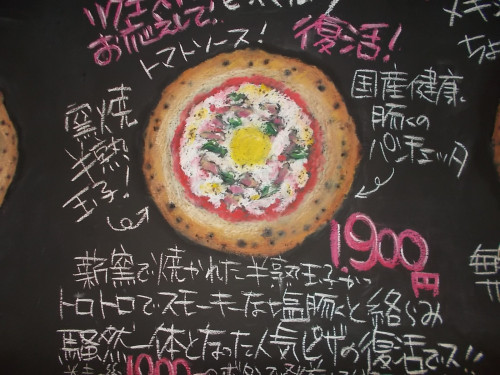 お応えして!
復活!
トマトソース!
国産健康
豚くの
パンチェッタ
窯焼
半熟
玉子!
1,900円
薪窯で焼かれた半熟玉子が
トロトロでスモーキーな塩豚くと絡らみ
騒然一体となった人気ピザの復活でス!!